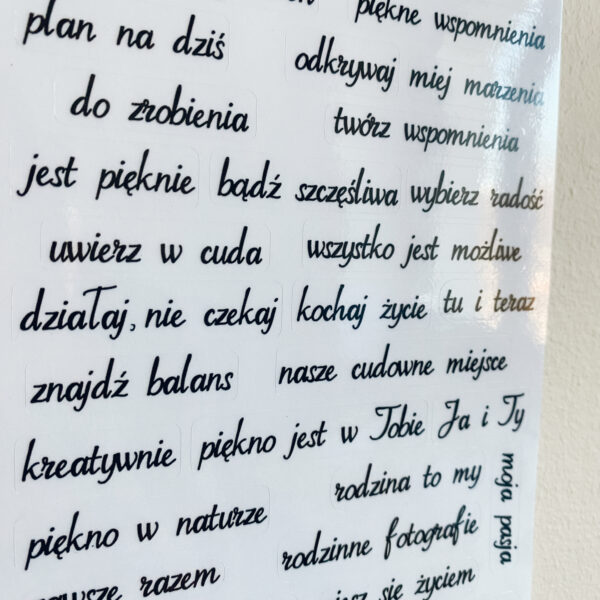 piękne wspomnienia
plan na dziś
odkrywaj miej marzenia
do zrobienia
twórz wspomnienia
jest pięknie bądź szczęśliwa wybierz radość
uwierz w cuda wszystko jest możliwe
działaj, nie czekaj kochaj życie tu i teraz
znajdź balans nasze cudowne miejsce
kreatywnie piękno jest w Tobie Ja i Ty
rodzina to my
moja pasja
piękno w naturze
rodzinne fotografie
razem
się życiem